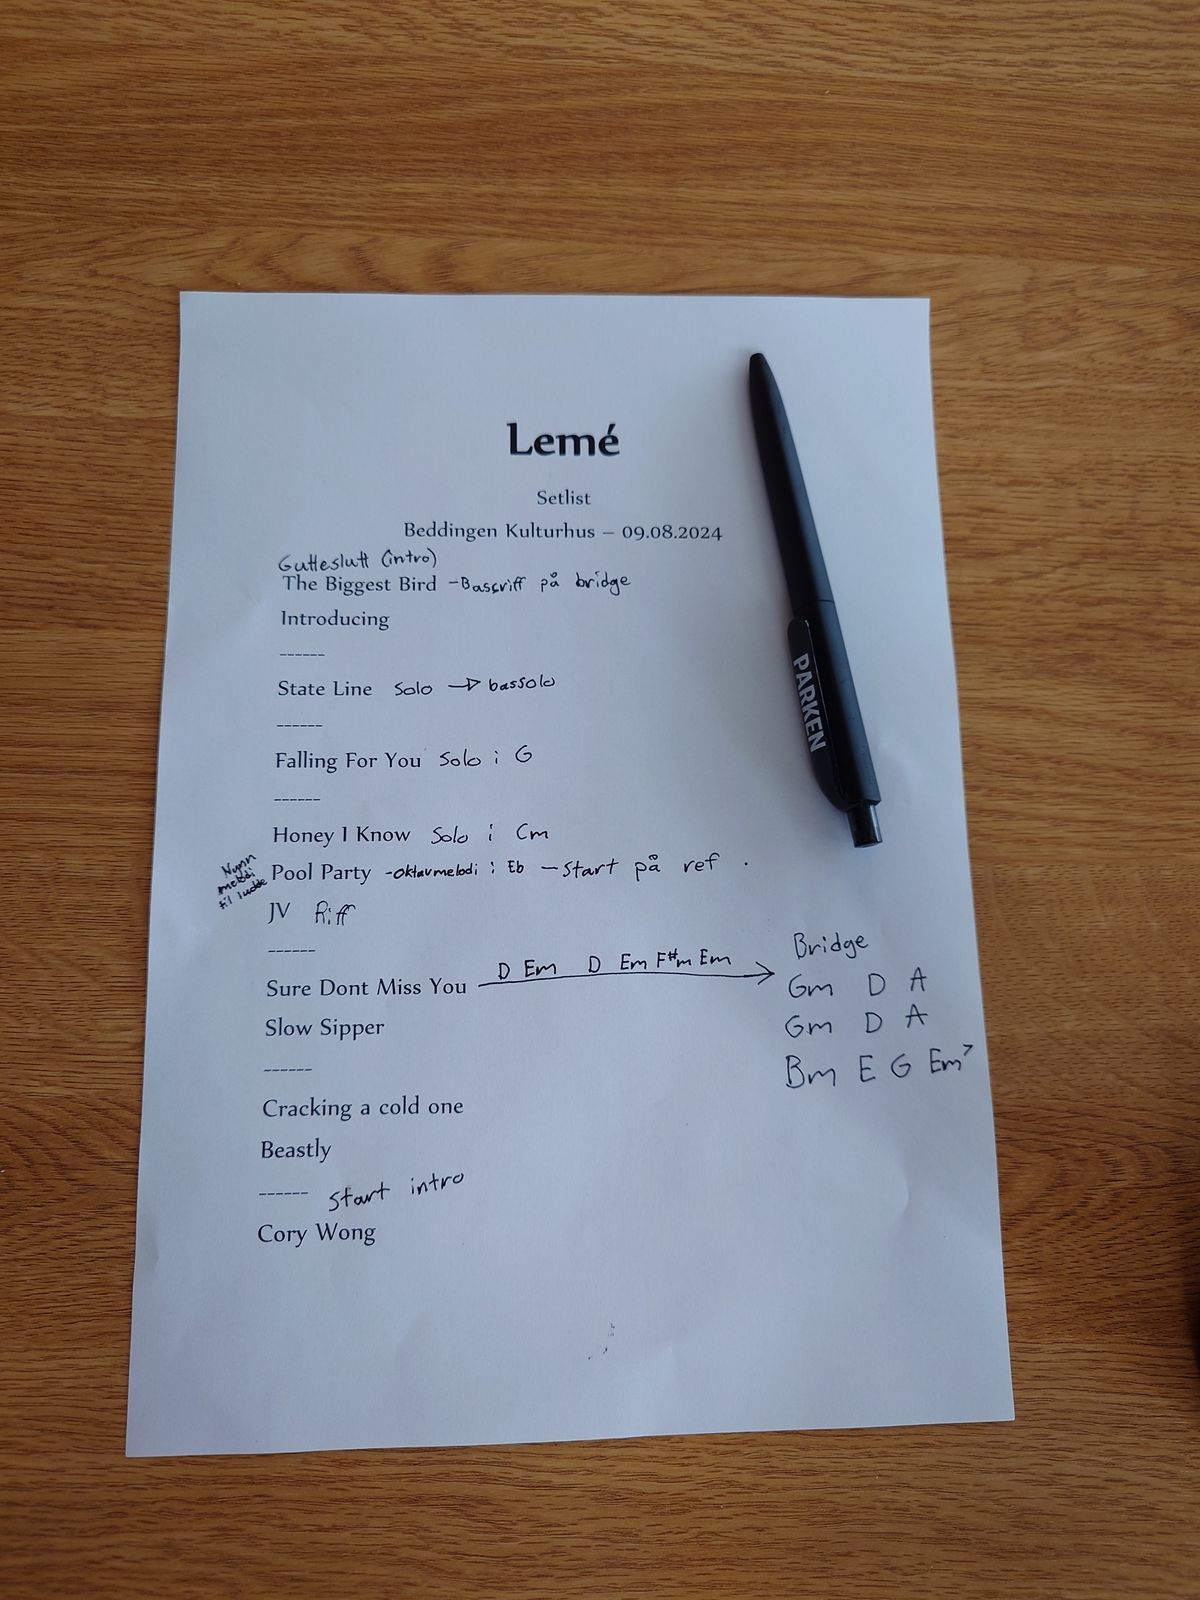 Lemé
Setlist
Beddingen Kulturhus – 09.08.2024
Gutteslutt (intro)
The Biggest Bird - Bassriff på bridge
Introducing
------
State Line Solo → bassolo
------
Falling For You Solo i G
------
Honey I Know Solo i Cm
Nynn
melodi
til ludde
Pool Party - oktavmelodi i Eb – start på ref .
JV Riff
------
D Em D Em F#m Em
Sure Dont Miss You →
Bridge
Gm D A
Gm D A
Bm E G Em7
Slow Sipper
------
Cracking a cold one
Beastly
------ Start intro
Cory Wong
PARKEN